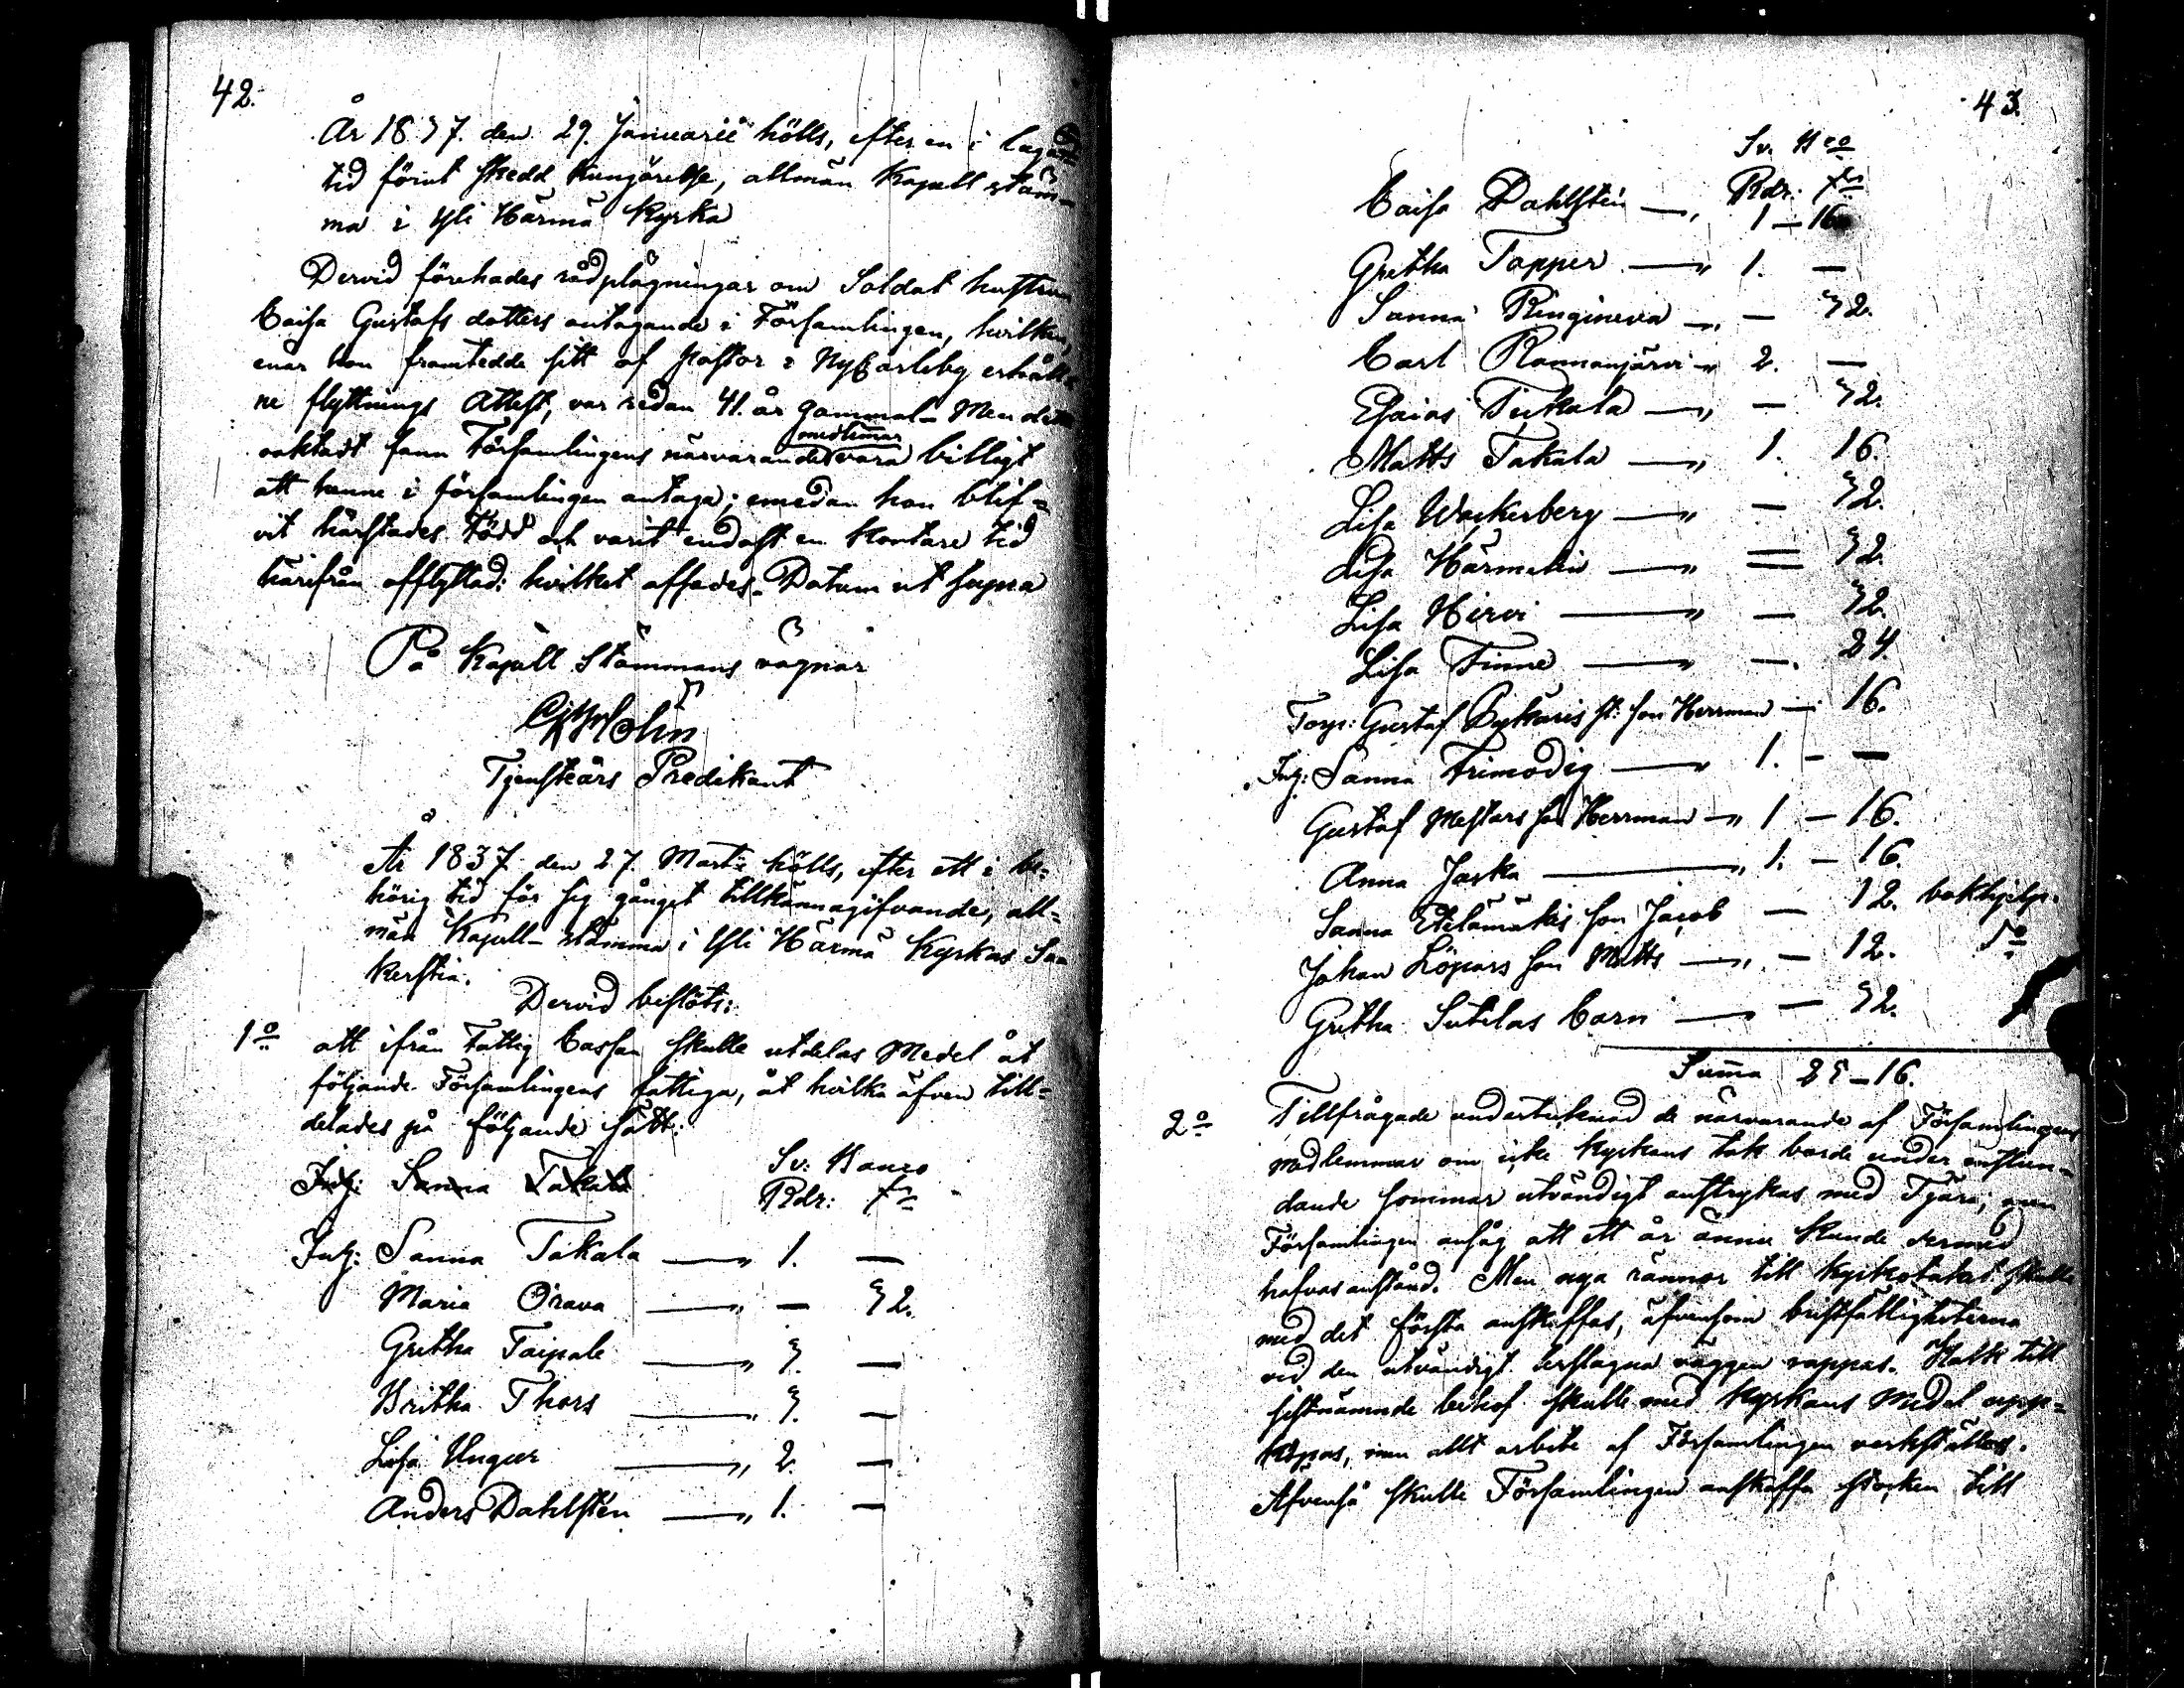 42.
År 1837. den 29. Januarii hölls, efter en i laga
tid förut skedd kungörelse, allmän Kapell stäm-
ma i Ylli Härmä Kyrka
Dervid förehades rådplägningar om Soldat hustrun
Caisa Gustafs dotters antagande i Församlingen, hvilken,
enär hon framtedde sitt af Pastor i NyCarleby erhåll-
ne flyttnings Attest, var redan 41. år gammal - Men det
oaktadt fann Församlingens närvarande medlemar vara billigt
att henne i församlingen antaga; emedan hon blif=
vit härstädes född och varit endast en kortare tid
härifrån afflyttad: hvilket affades. Datum ut supra
På Kapell Stämmans vägnar
Tjensteårs Predikant
År 1837 den 27. Martii hölls, efter ett i be=
hörig tid för sig gånget tillkännagifvande, all=
män Kapell-stämma i Ylli Härmä Kyrkas Sa
kerstia.
Dervid beslöts:
1o att ifrån Fattig Cassan skulle utdelas Medel åt
följande Församlingens fattiga, åt hvilka äfven till=
delades på följande sätt:
Inh: Sanna Takala Sv: Banco
Rdr: s
Inh: Sanna Takala — " 1. —
Maria Orava — " — 32.
Gretha Taipale — " 3. —
Britha Thors — " 3. —
Lisa Unger — " 2. —
Anders Dahlstén — " 1. —
43.
Sv. Bco
Rdr. s
Caisa Dahlstén — " 1 — 16
Gretha Topper — " 1. —
Sanna Rengineva — " — 32.
Carl Rannanjärvi — " 2. —
Esaias Tiskala — " — 32.
Matts Takala — " 1. 16.
Lisa Wackerberg — " — 32.
Lisa Härmälin — " — 32.
Lisa Hirvi — " — 32.
Lisa Finne — " — 24.
Torp: Gustaf Pyckäris st: son Herrman — 16.
Inh: Sanna Frimodig — " 1. — —
Gustaf Mestars son Herrman — " 1 — 16.
Anna Jaska — " 1. — 16.
Sanna Etelämäkis son Jacob — 12. bokhjelp.
Johan Löpars son Matts — " — 12. do
Gretha Sutelas barn — " — 32.
Summa 25 — 16.
2o Tillfrågade undertecknad de närvarande af Församlingens
medlemmar om icke kyrkans tak borde under anstun=
dande sommar utvändigt anstrykas med Tjära; men
Församlingen ansåg att ett år ännu kunde dermed
hafvas anstånd. Men nya rännor till kyrkotaket skulle
med det första anskaffas, äfvensom bristfälligheterna
vid den utvändigt berslagna väggen rappas. Kalk till
sistnämnde behof skulle med kyrkans Medel upp=
köpas, men allt arbete af Församlingen verkställas.
Äfvenså skulle Församlingen anskaffa stocken till